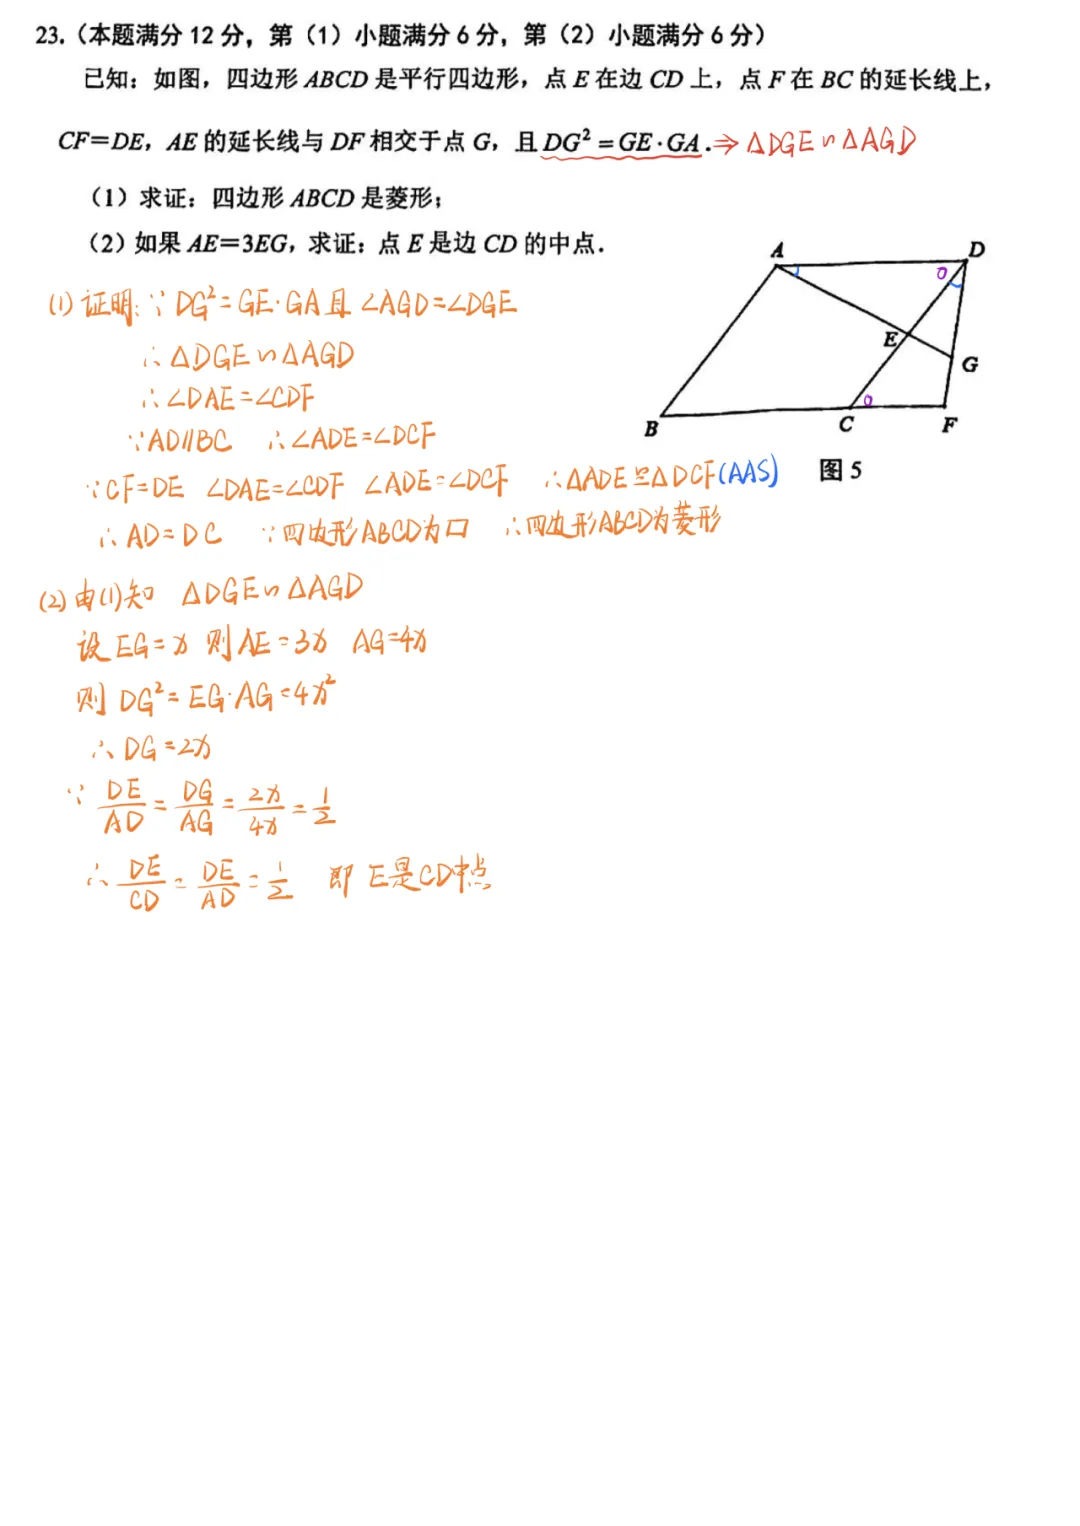 23.（本题满分 12 分，第（1）小题满分 6 分，第（2）小题满分 6 分）
已知：如图，四边形 ABCD 是平行四边形，点 E 在边 CD 上，点 F 在 BC 的延长线上，
CF＝DE，AE 的延长线与 DF 相交于点 G，且 DG²＝GE·GA．⇒ △DGE∽△AGD
（1）求证：四边形 ABCD 是菱形；
（2）如果 AE＝3EG，求证：点 E 是边 CD 的中点．
A D
E
G
B C F
图 5
(1) 证明：∵ DG²=GE·GA 且 ∠AGD=∠DGE
∴ △DGE∽△AGD
∴ ∠DAE=∠CDF
∵AD∥BC ∴∠ADE=∠DCF
∵CF=DE ∠DAE=∠CDF ∠ADE=∠DCF ∴△ADE≌△DCF(AAS)
∴ AD=DC ∵四边形ABCD为口 ∴四边形ABCD为菱形
(2) 由(1)知 △DGE∽△AGD
设 EG=x 则 AE=3x AG=4x
则 DG²=EG·AG=4x²
∴ DG=2x
∵ DE/AD = DG/AG = 2x/4x = 1/2
∴ DE/CD = DE/AD = 1/2 即 E是CD中点